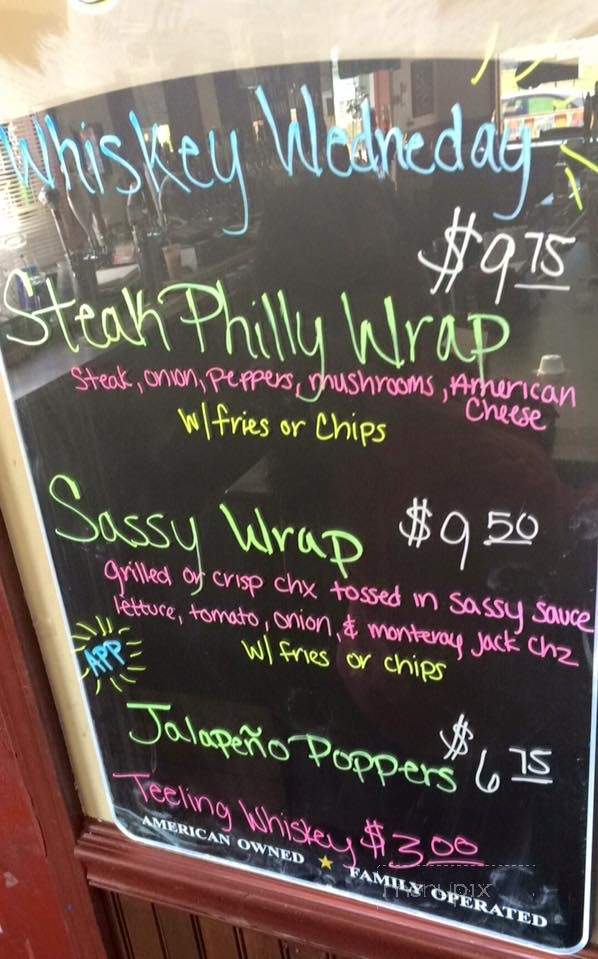 Whiskey Wedneday
$9.75
Steak Philly Wrap
Steak, onion, peppers, mushrooms, American
Cheese
w/ fries or Chips
Sassy Wrap $9.50
grilled or crisp chx tossed in Sassy Sauce
lettuce, tomato, onion, & monteray Jack chz
w/ fries or chips
APP
Jalapeño Poppers $6.75
Teeling Whiskey $3.00
AMERICAN OWNED ★ FAMILY OPERATED
menupix